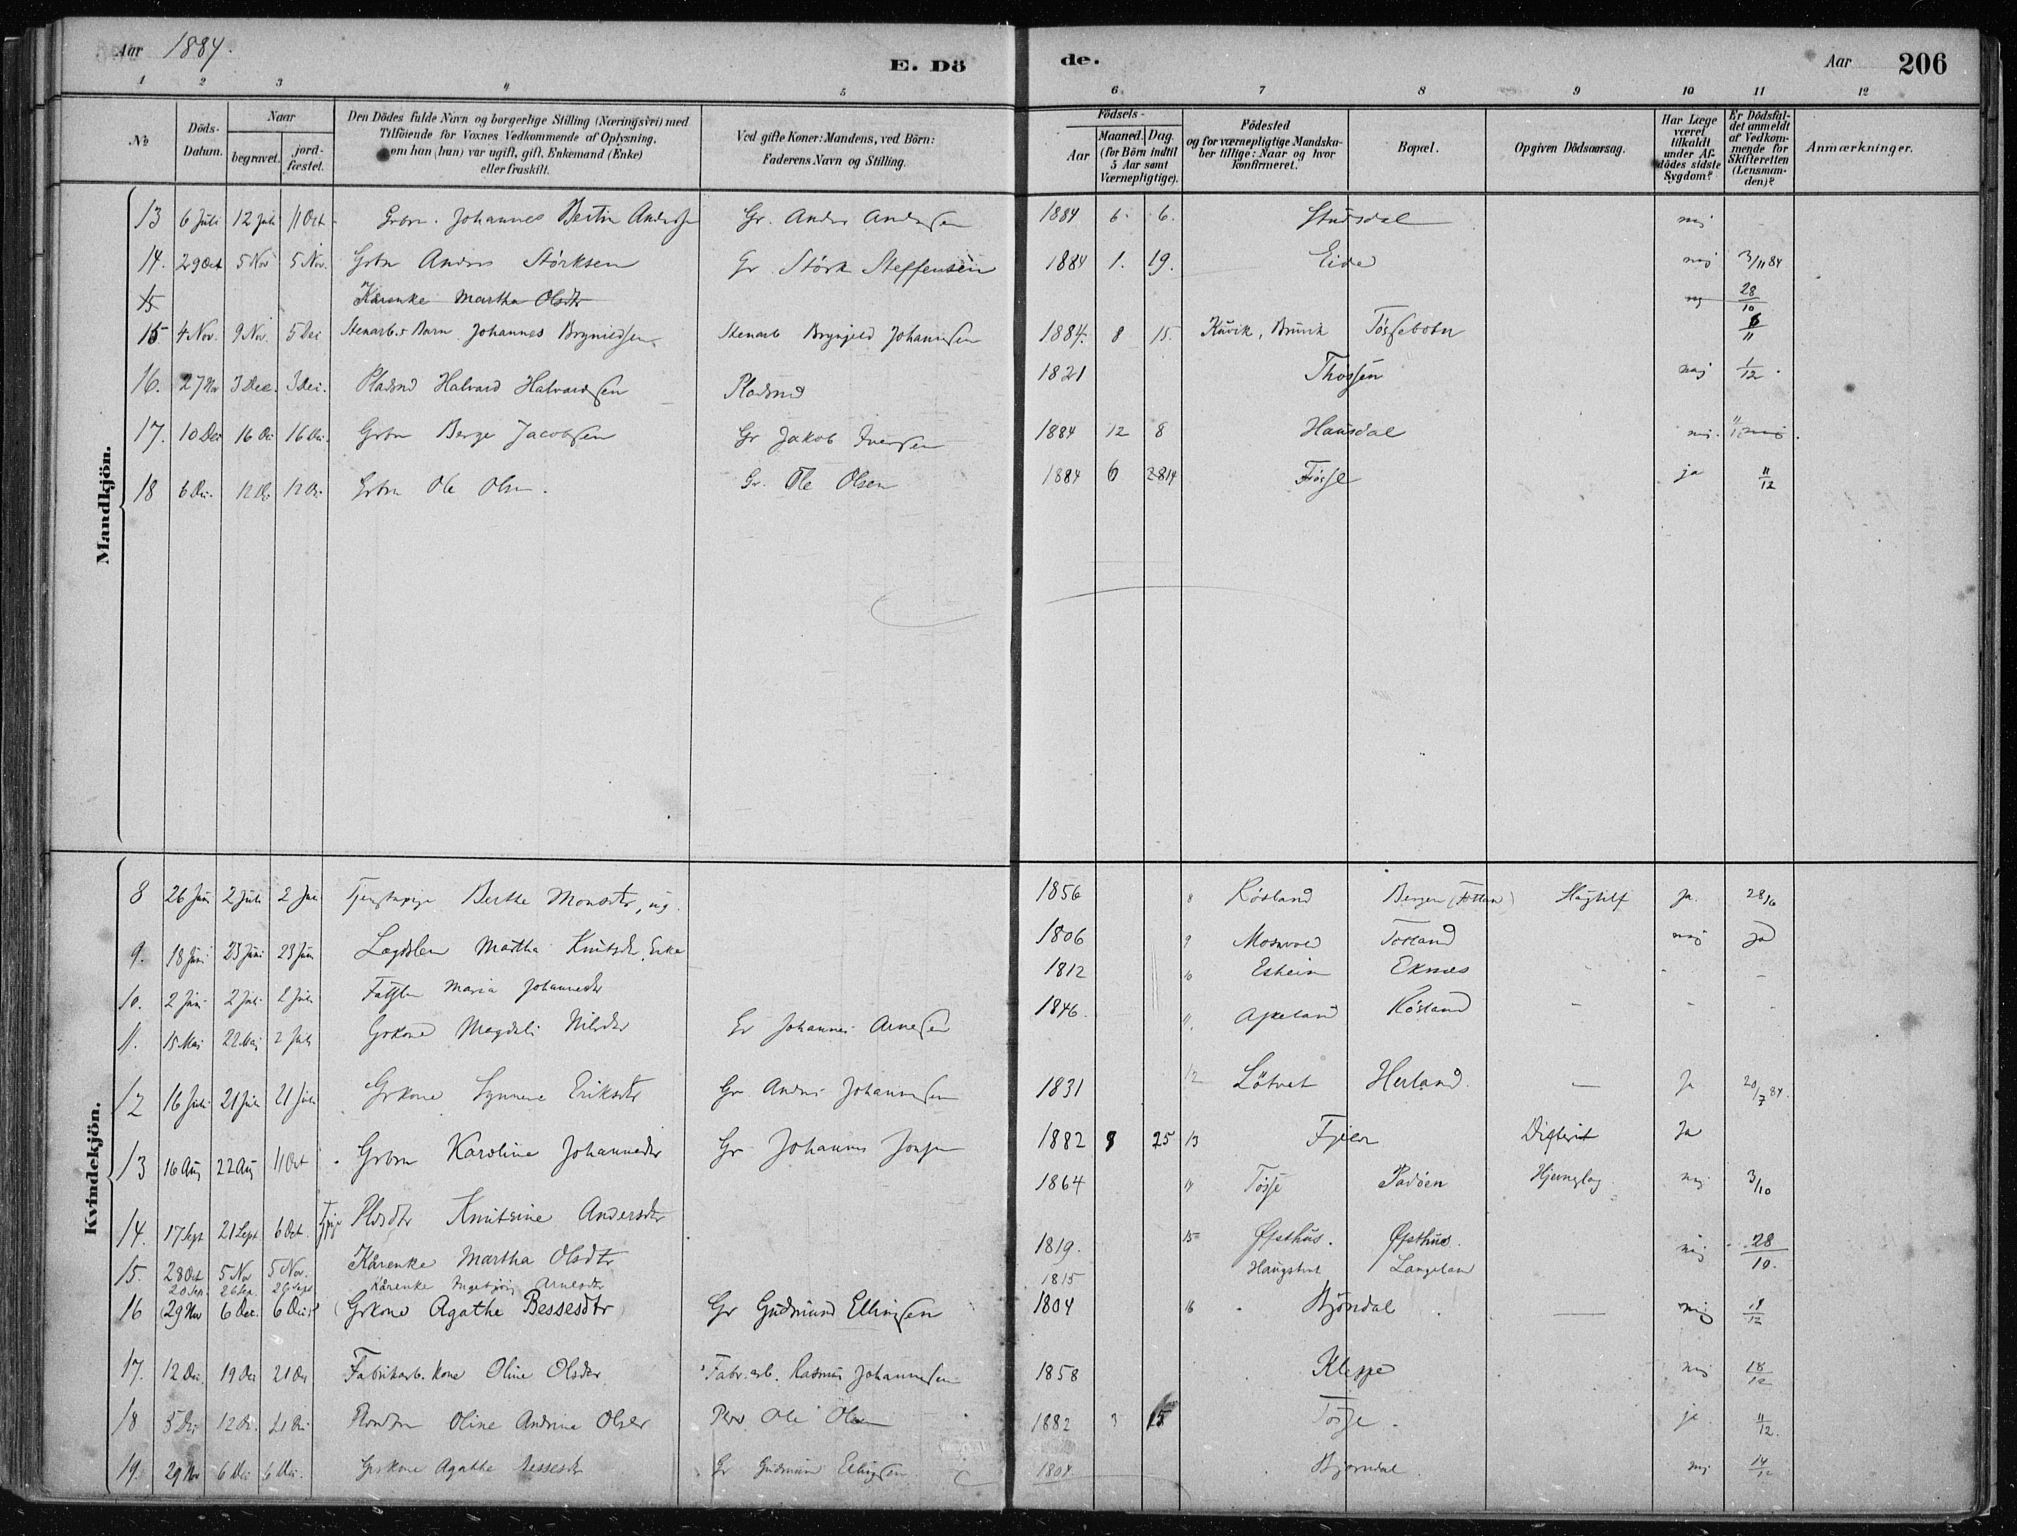 Aar 1884.
E. Dö
de.
Aar
206
1 2 3 4 5 6 7 8 9 10 11 12
No
Döds-Datum.
Naar
begravet.
jord-fæstet.
Den Dödes fulde Navn og borgerlige Stilling (Næringsvei) med
Tilföiende for Voxnes Vedkommende af Oplysning,
om han (hun) var ugift, gift, Enkemand (Enke)
eller fraskilt.
Ved gifte Koner: Mandens, ved Börn:
Faderens Navn og Stilling.
Födsels-
Aar
Maaned.
Dag.
(for Börn indtil
5 Aar samt
Værnepligtige).
Födested
og for værnepligtige Mandska-
ber tillige: Naar og hvor
konfirmeret.
Bopæl.
Opgiven Dödsaarsag.
Har Læge
været
tilkaldt
under Af-
dödes sidste
Sygdom?
Er Dödsfal-
det anmeldt
af Vedkom-
mende for
Skifteretten
(Lensman-
den)?
Anmærkninger.
Mandkjön.
13 6 Juli 12 Juli 11 Oct Grbn. Johannes Bertin Anders Gr. Anders Andersen 1884 6. 6. Studsdal nej
14. 29 Oct 5 Nov 5 Nov. Grbn Anders Störksen Gr. Störk Steffensen 1884 1. 19. Eide nej 3/11 84
15 Kårenke Martha Olsdtr nej 28/10
15 4 Nov. 9 Nov. 5 Dec Stenarb.s Barn Johannes Brynildsen Stenarb Brynjeld Johannesen 1884. 8 15. Bruvik Tössebotn 6/11
16. 27 Nov 3 Dec. 3 Dec. Pladsmd Halvard Halvardsen Pladsmd 1821 Thossen nej 1/12.
17. 10 Dec 16 Dec 16 Dec. Grbn Berge Jacobsen Gr Jakob Iversen 1884 12 8 Hausdal nej.
18 6 Dec. 12 Dec 12 Dec Grbn Ole Olsen. Gr. Ole Olsen 1884 6 2814 Tösse ja 11/12
Kvindekjön.
8 26 Juni 2 Juli 2 Juli Berthe Monsdtr, ug. 1856 8 Rösland Bergen Ja. 28/6
9. 18 Juni 23 Juni 23 Juni Lægdslem Martha Knutsdr. Enke 1806 9 Mosevold Tosland nej Ja
10. 2 Juni 2 Juli 2 Juli Maria Johannesdtr 1812 10 Esheim Eknæs - - -
11. 15 Mai 22 Maj 2 Juli Grkone Magdeli Nilsdtr Gr Johannes Arnesen 1846. 11. Apeland Rösland - - -
12 16 Juli 21 Juli 21 Juli Grkone Synneve Eriksdtr Gr Anders Johannesen 1831 12 Lötvet Herland. — Ja 20/7 84.
13 16 Aug 22 Aug 11 Oct Grbrn Karoline Johannesdtr Gr Johannes 1882 8 25 13 Fjeen Difterit Ja
14. 17 Sept 21 Sept 6 Oct. Plsdtr Knutrine Andersdtr 1864 14 Tösse Padöen nej 3/10
15. 28 Oct 5 Nov 5 Nov. Kårenke Martha Olsdtr 1819. 15 Öfsthus. Öfsthus. nej 28/10.
20 Sep. 26 Sep. 26 Sept Kårenke Ingebjörg Arnesdtr 1815 Langeland
16 (29 Nov 6 Dec. 6 Dec (Grkone Agathe Bessesdtr) Gr Gudmund Ellingsen 1804 16 Bjöndal — nej 14/12
17. 12 Dec. 19 Dec 21 Dec Fabrikarb. kone Oline Olsdtr Fabr. arb. Rasmus Johannesen 1858 Kleppe nej 18/12
18 5 Dec 12 Dec. 21 Dec Oline Andrine Olsdr Ole Olsen 1882 3 15 Tösse. ja 11/12.
19. 29 Nov 6 Dec 6 Dec. Grkone Agathe Bessesdtr Gr Gudmun Ellingsen 1804 Bjorndal nej 14/12